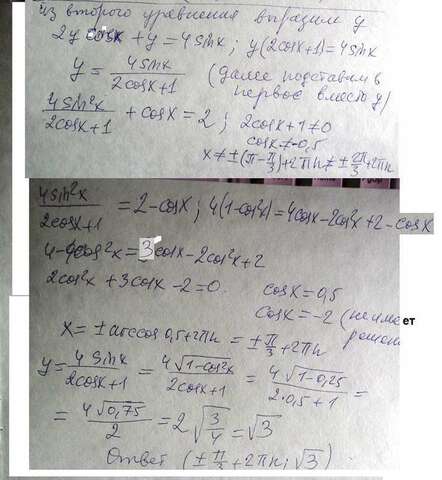 из второго уравнения выразим y
2y cosx + y = 4 sinx ; y(2cosx+1) = 4sinx
y = 4sinx / 2cosx+1 (далее подставим в первое вместо y)
4sin²x / 2cosx+1 + cosx = 2 ; 2cosx+1≠0
cosx≠-0,5
x≠±(π-π/3)+2πn≠±2π/3+2πn
4sin²x / 2cosx+1 = 2-cosx ; 4(1-cos²x)=4cosx-2cos²x+2-cosx
4-4cos²x=3cosx-2cos²x+2
2cos²x+3cosx-2=0. cosx=0,5
cosx=-2 (не имеет решени
x=±arccos0,5+2πn=±π/3+2πn
y=4sinx / 2cosx+1 = 4√1-cos²x / 2cosx+1 = 4√1-0,25 / 2·0,5+1 =
= 4√0,75 / 2 = 2√3/4 = √3
Ответ (±π/3+2πn; √3)